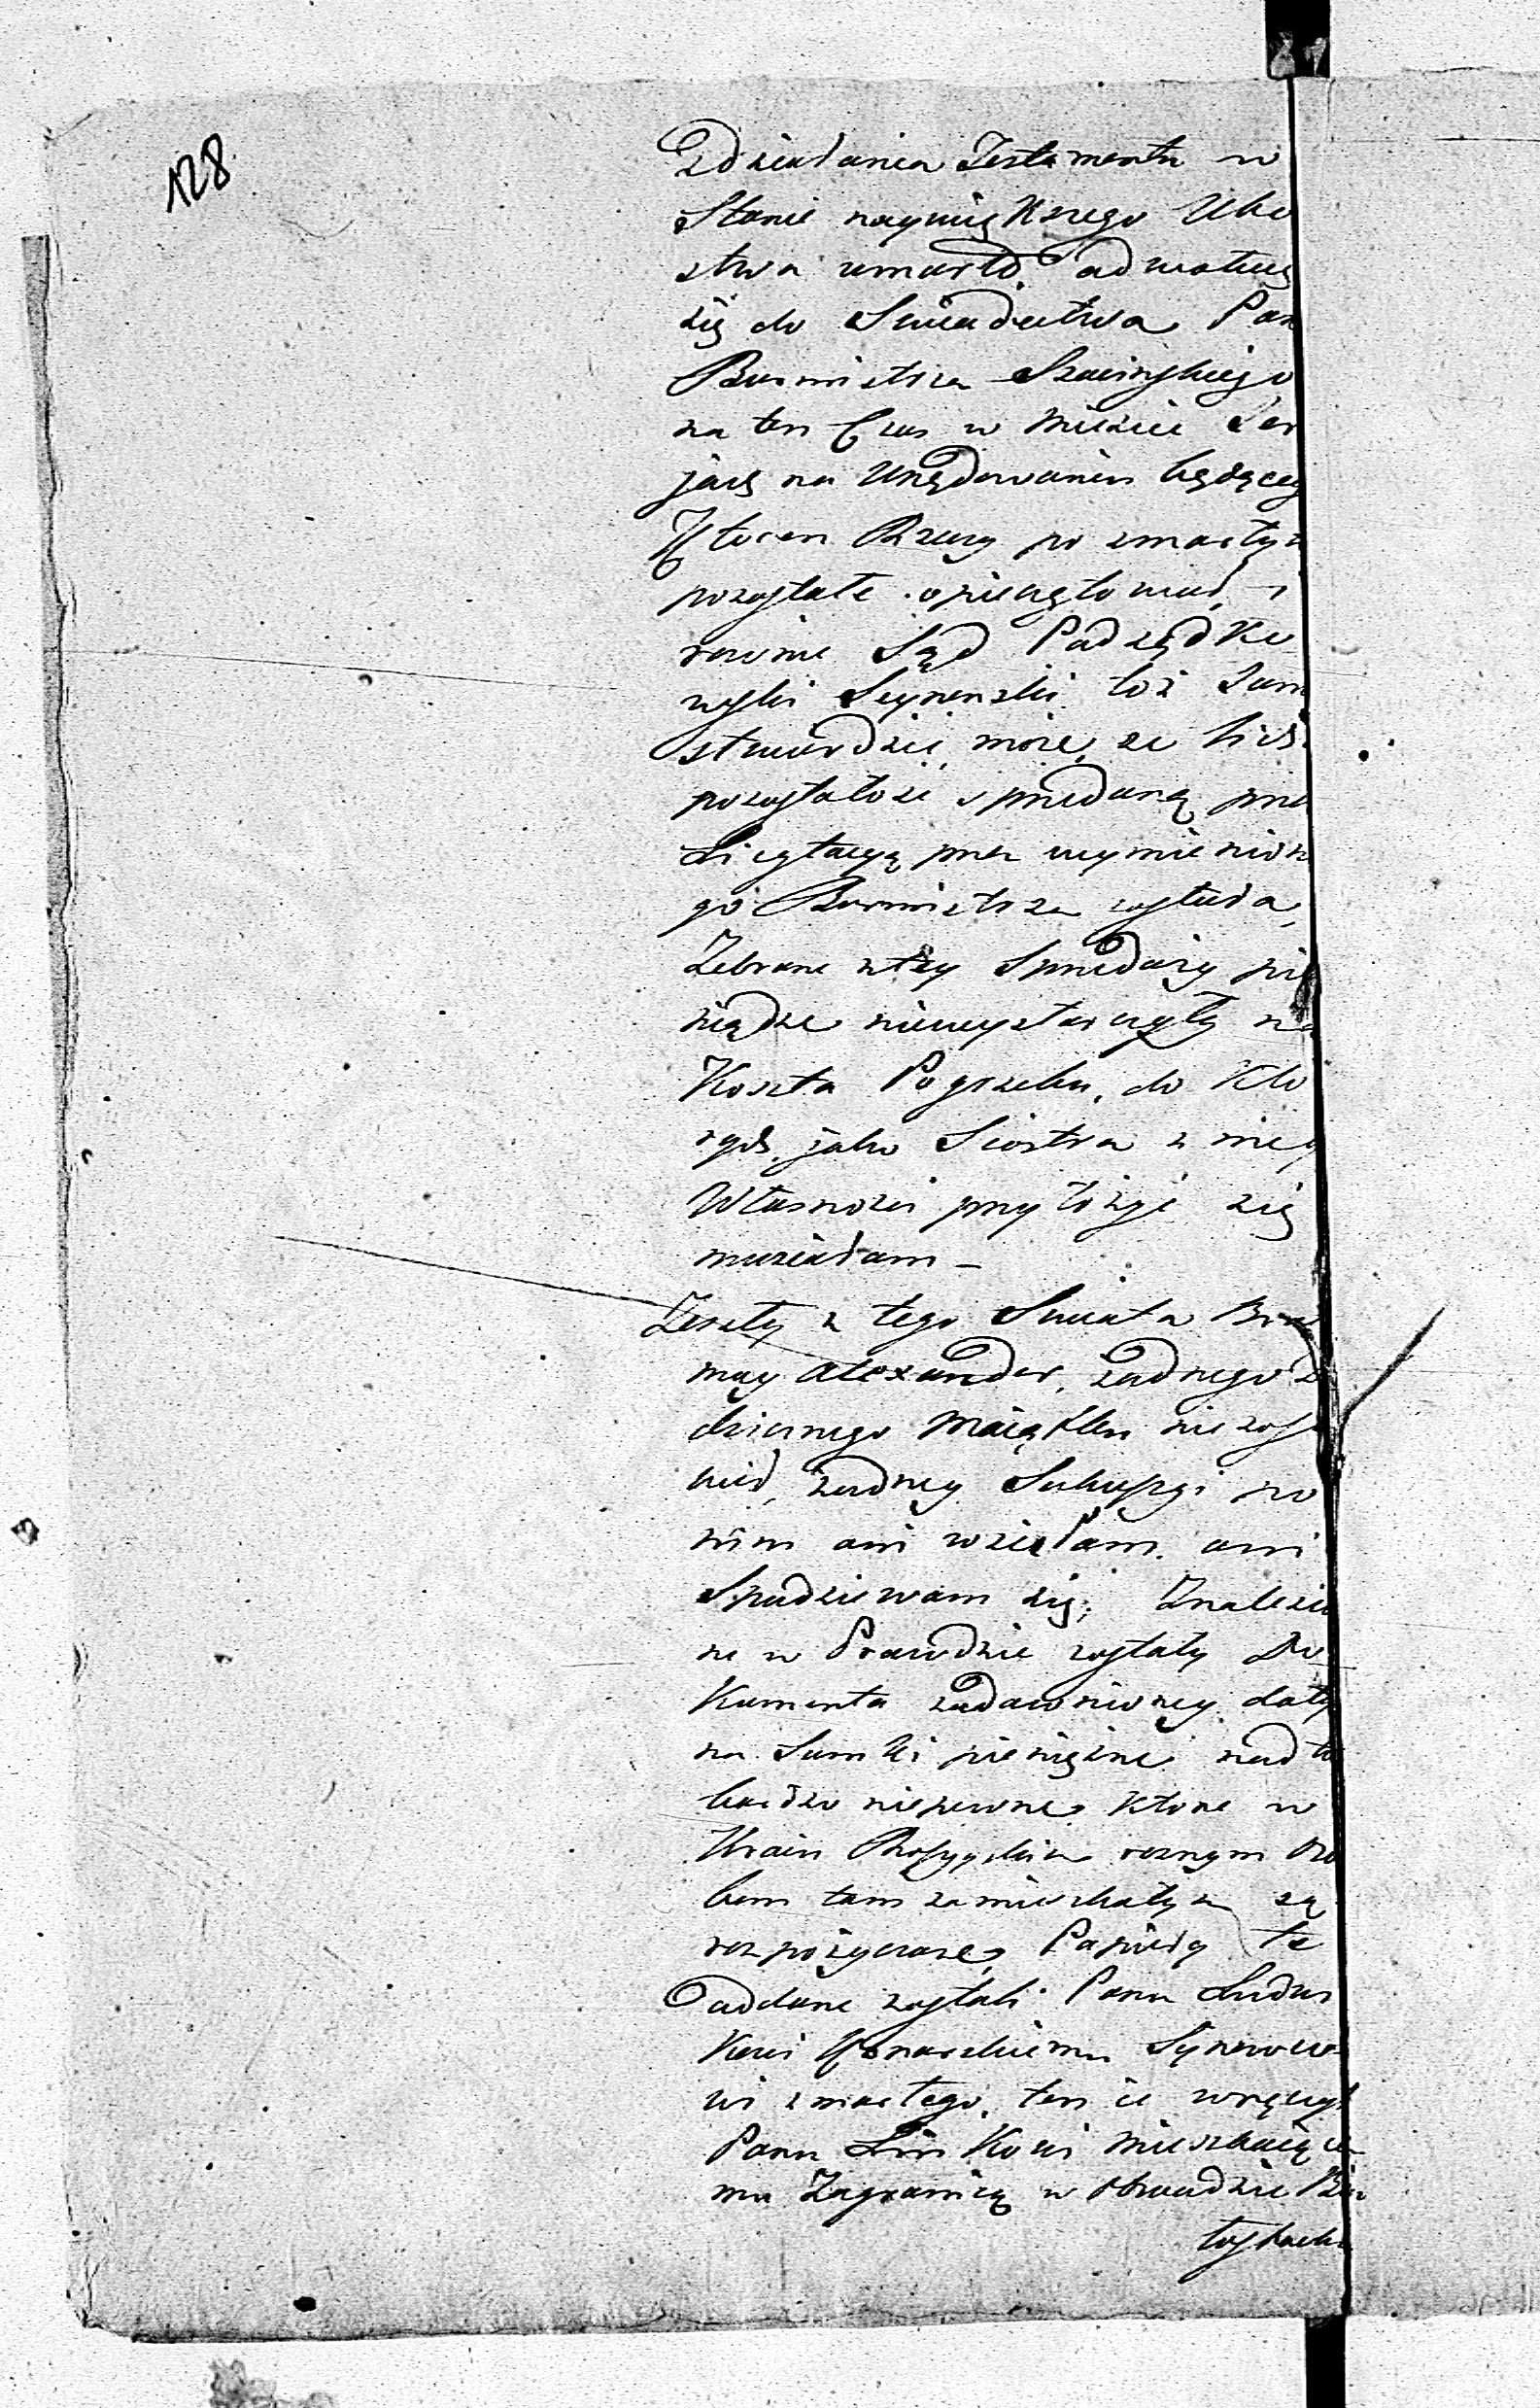 128
Zdziałania Testamentu w
Stanie naywiększego Ubo
stwa umarł, odwołuię
się do Swiadectwa Pan
Burmistrza
na ten Czas w Miescie Ser
jach na Urzędowaniu będąceg
Którem Rzeczy po zmarłym
pozostałe opieczętował, i
rownie Sąd Podsędko
wski Seynenski toż samo
stwierdzić może, że licha
pozostałość sprzedaną prze
Licytacyą przez wymienion
go Burmistrza została,
Zebrane z tey Sprzedaży pie
niądze niewystarczyły na
Koszta Pogrzebu, do Któ
rych jako Siostra z mey
Własności przyłożyć się
musiałam –
Zeszły z tego Swiata Brat
moy Alexander, żadnego dz
dzicznego Maiątku nie zosta
wił, żadney Sukcessyi po
nim ani wziełam, ani
Spodziewam się; Znalezio
ne w Prawdzie zostały Do
Kumenta zadawnioney daty
na Sumki pieniężne nadto
bardzo niepewne, Które w
Kraiu Rossyyskim roznym Oso
bom tam zamieszkałym są
rozpożyczone, Papiery te
oddane zostały Panu Ludwi
Kowi Synowco
wi zmarłego, ten ie wręczył
Panu mieszkaiące
mu Zagranicą w Obwodzie Bia
łostockim